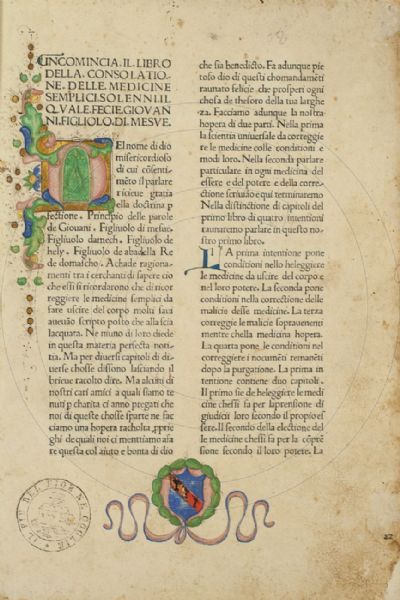 INCOMINCIA. IL. LIBRO
DELLA. CONSOLATIO
NE. DELLE. MEDICINE
SEMPLICI. SOLENNI. IL
QVALE. FECIE. GIOVAN
NI. FIGLIOLO. DI MESVE.
EL nome di dio
misericordioso
di cui
il parlare
ricieue gratia
ella doctrina
fectione. Principio delle parole
de Giouani. Figliuolo di mesue.
Figliuolo damech. Figliuolo de
hely. Figliuolo de abadella Re
de domascho. Achade ragiona
menti tra i cerchanti di sapere cio
che essi si ricordarono che di cor
reggiere le medicine semplici da
fare uscire del corpo molti saui
scripto poi che alla
lacquara. Ne niuno di loro diede
in questa materia perfecta noti
tia. Ma per diuersi capitoli di di
uerse chosse dissono lasciando il
brieue racolto dire. Ma alcuni di
nostri cari amici a quali siamo te
nuti p charita ci anno pregati che
noi di queste chosse sparte ne fac
ciamo una hopera racholta
ghi de quali noi ci mentiamo
re questa col aiuto e bonta di dio
che sia benedicto. Fa adunque pie
toso dio di questi chomandamēti
raunato felicie. che prosperi ogni
chosa de thesoro della tua larghe
za. Facciamo adunque la nostra
hopera di due parti. Nella prima
la scientia uniuersale da correggie
re le medicine colle conditioni e
modi loro. Nella seconda parlare
particulare in ogni medicina del
essere e del potere e della corre
ctione scriuāo e qui terminaremo
Nella distinctione di capitoli del
primo libro di quatro intentioni
raunaremo parlare in questo no
stro primo libro.
LA prima intentione pone
conditioni nello heleggiere
le medicine da uscire del corpo e
nel loro potere. La seconda pone
conditioni nella correctione delle
malicie desse medicine. La terza
correggie le malicie soprauenenti
mentre chella medicina hopera.
La quarta pone le conditioni nel
correggiere i nocumēti remanēti
dopo la purgatione. La prima in
tentione contene duo capitoli.
Il primo sie de heleggiere le medi
cine chessi fa per laprensione di
giudicii loro secondo il propio es
sere. Il secondo della electione del
le medicine chessi fa per la cōprē
sione secondo il loro potere. La
22